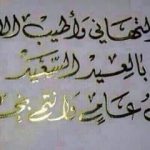 التهاني وأطيب
بالعيد السعيد
عام وأنتم